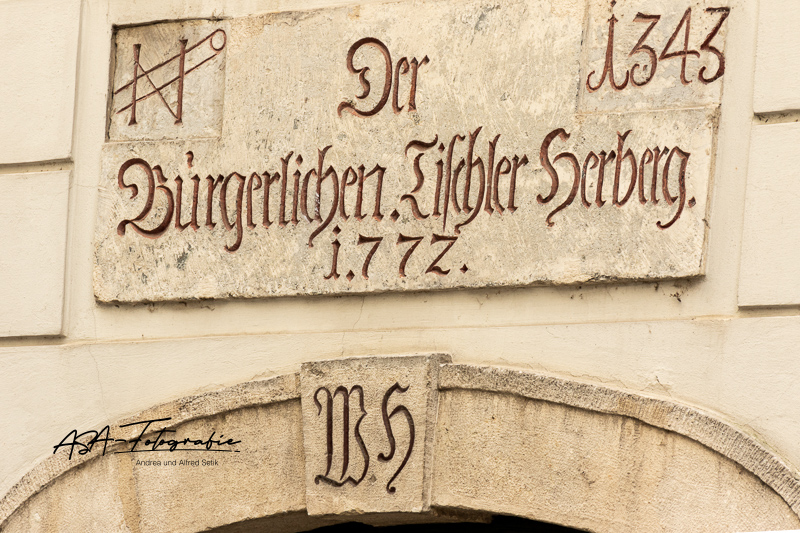 Der
1343
Bürgerlichen. Tischler Herberg.
1.7 7 2.
W H
ASA-Fotografie
Andrea und Alfred Setik